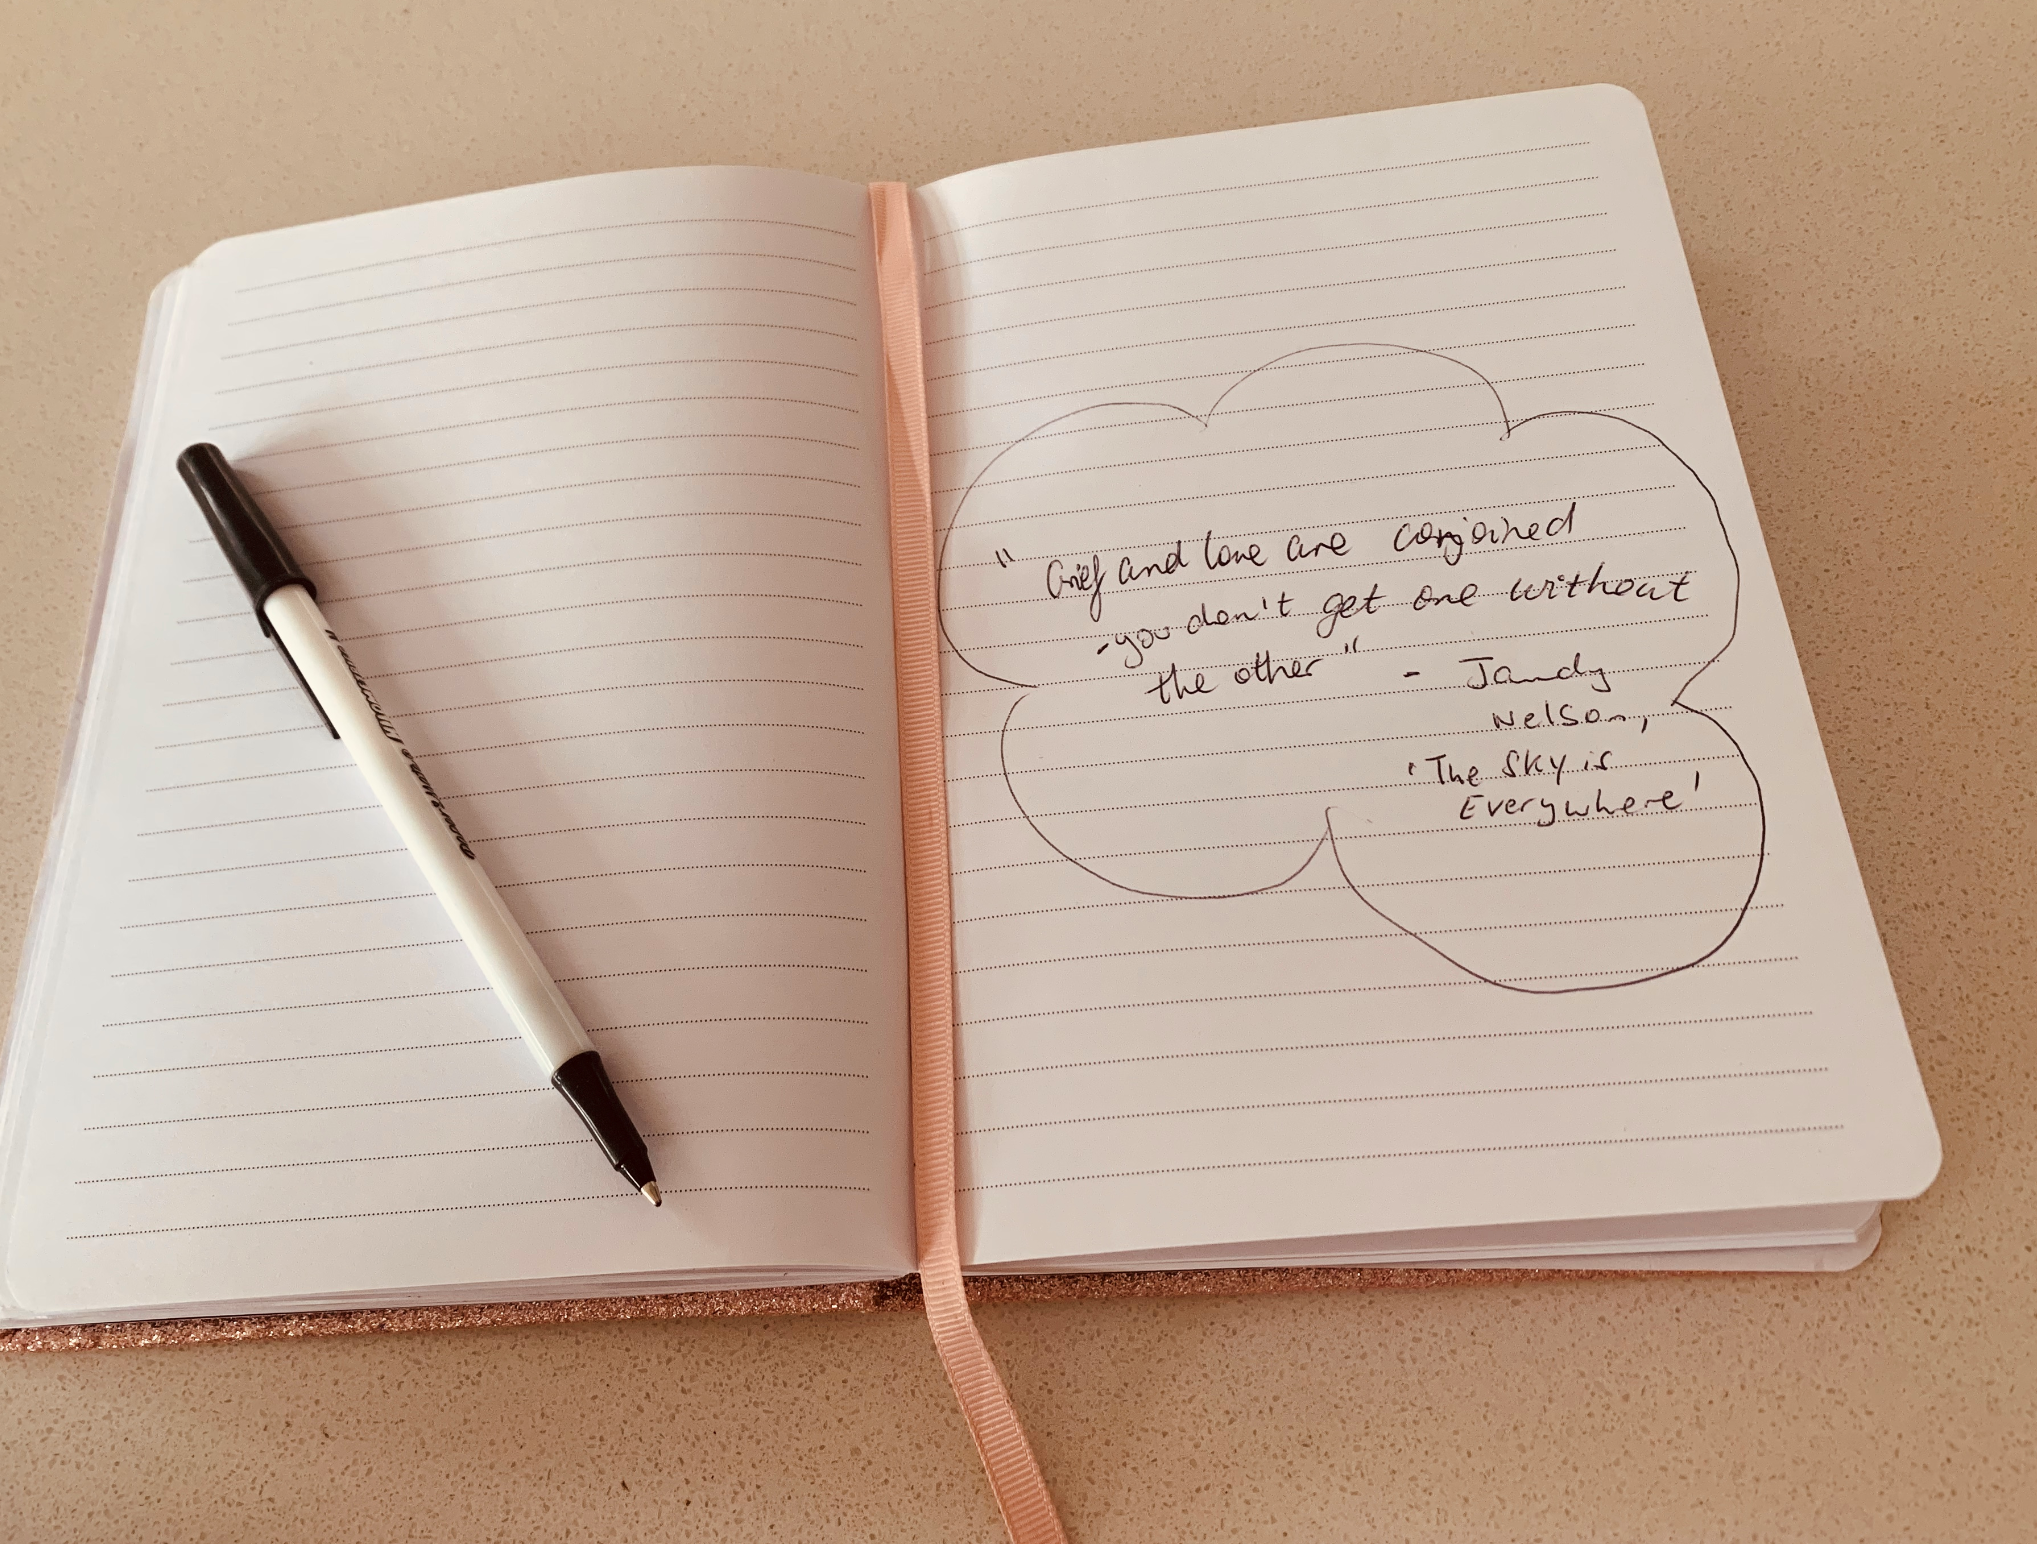 " Grief and love are conjoined
- you don't get one without
the other" - Jandy
Nelson,
'The Sky is
Everywhere'